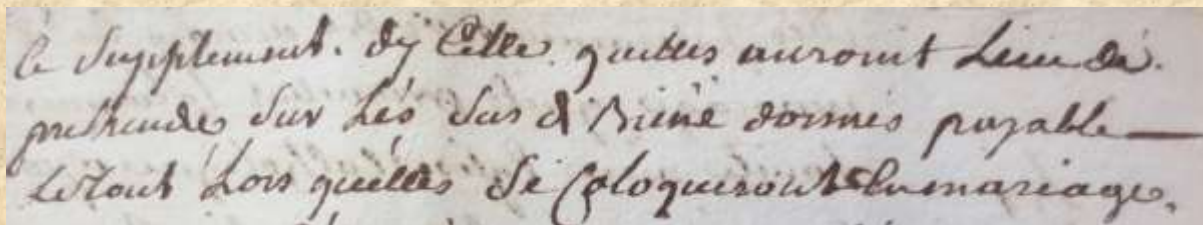 le supplement. dy Celle. quelles auront Lieu de.
prethendre sur Lés sus d Biene donnés payable
Le tout Lors quélles se Coloqueront En mariage.